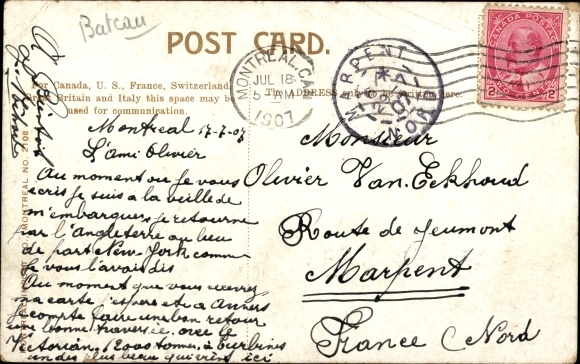 Bateau
POST CARD.
For Canada, U. S., France, Switzerland,
Great Britain and Italy this space may be
used for communication.
The ADDRESS only to be written here.
MONTREAL, CAN.
JUL 18
5
AM
1907
MARPENT
NORD
CANADA POSTAGE
2 CENTS 2
MONTREAL NO.
108
Montreal 17-7-07
L'ami Olivier
Au moment ou je vous
ecris je suis a la veille de
m'embarquer, je retourne
par l'Angleterre au lieu
de part New-York comme
je vous l'avais dis
Au moment que vous recevrez
ma carte j'espere etre a Anvers
je compte faire une bon retour
une bonne traversée avec le
Victorian, 12000 tonnes, à turbines
un des plus beau qui vient ici
Monsieur
Olivier Van.Eekhoud
Route de Jeumont
Marpent
France (Nord